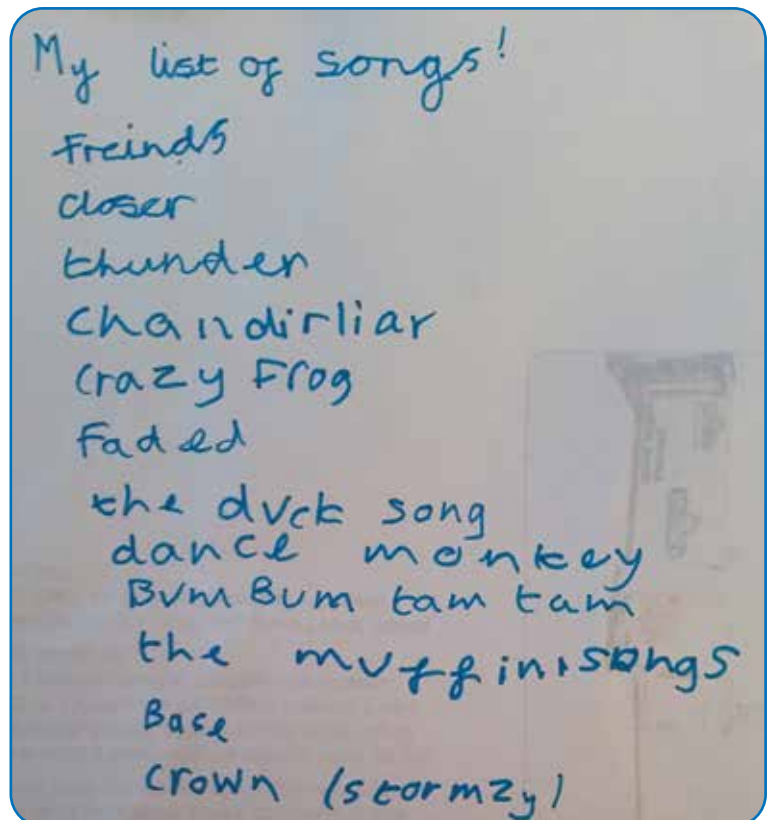 My list of songs!
freinds
closer
thunder
chandirliar
crazy Frog
Faded
the duck song
dance monkey
Bum Bum tam tam
the muffin songs
Base
crown (stormzy)